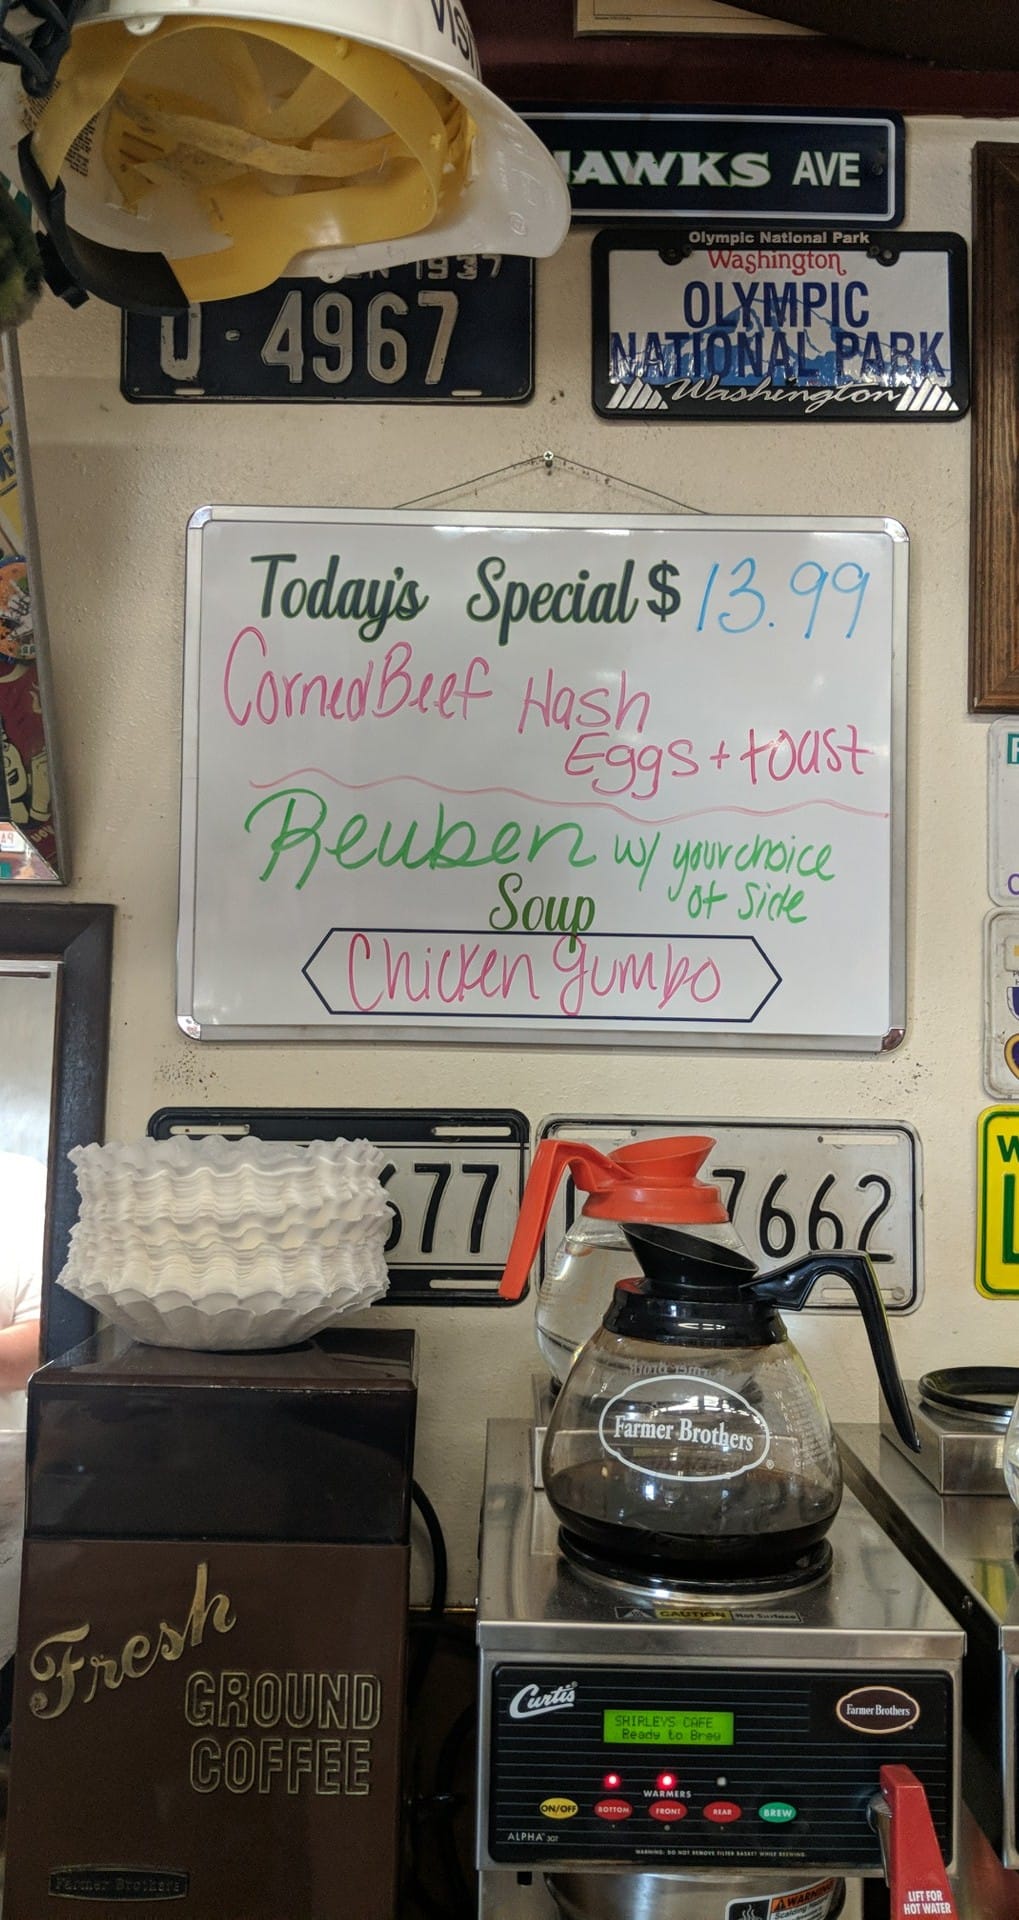 HAWKS AVE
1937
4967
Olympic National Park
Washington
OLYMPIC
NATIONAL PARK
Washington
Today's Special $ 13.99
Corned Beef Hash
Eggs + toast
Reuben w/ your choice
of side
Soup
Chicken gumbo
677
7662
Farmer Brothers
CAUTION Hot Surface
Fresh
GROUND
COFFEE
Farmer Brothers
Curtis
SHIRLEYS CAFE
Ready to Brew
Farmer Brothers
WARMERS
ON/OFF BOTTOM FRONT REAR BREW
ALPHA 3GT
WARNING: DO NOT REMOVE FILTER BASKET WHILE BREWING.
WARNING
LIFT FOR
HOT WATER